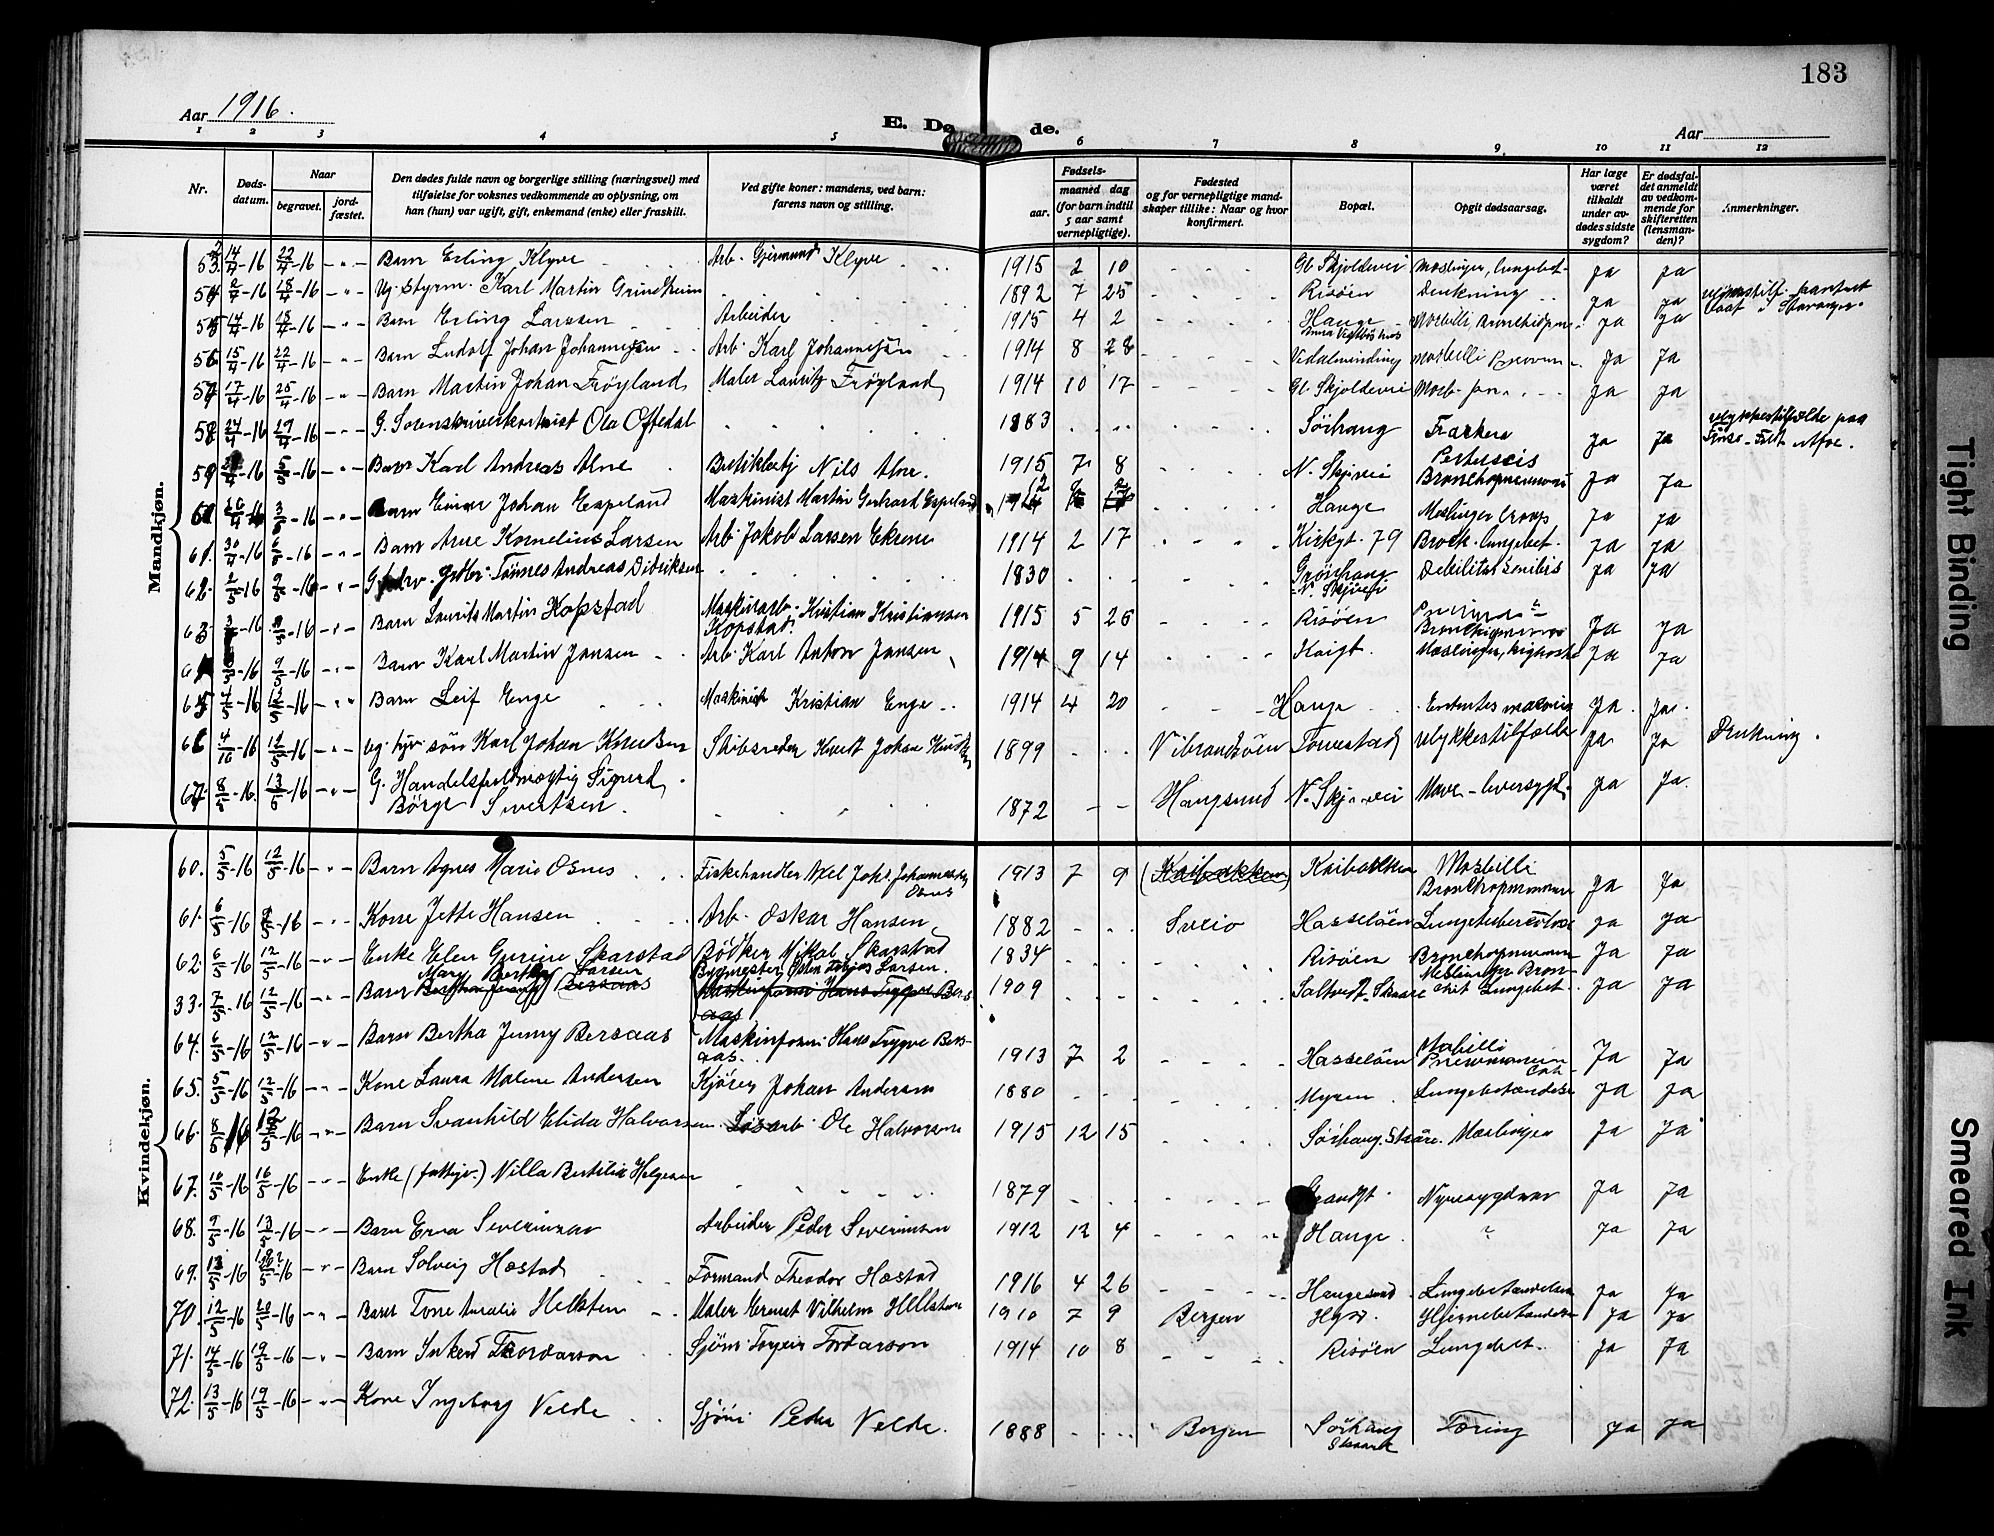 183
Aar 1916.
E. Dø de.
Aar
1 2 3 4 5 6 7 8 9. 10 11 12
Nr.
Døds-datum.
Naar
begravet.
jord-fæstet.
Den dødes fulde navn og borgerlige stilling (næringsvei) med tilføielse for voksnes vedkommende av oplysning, om han (hun) var ugift, gift, enkemand (enke) eller fraskilt.
Ved gifte koner: mandens, ved barn: farens navn og stilling.
Fødsels-
aar.
maaned dag
(for barn indtil 5 aar samt vernepligtige).
Fødested og for vernepligtige mandskaper tillike: Naar og hvor konfirmert.
Bopæl.
Opgit dødsaarsag.
Har læge været tilkaldt under avdødes sidste sygdom?
Er dødsfaldet anmeldt av vedkommende for skifteretten (lensmanden)?
Anmerkninger.
Mandkjøn.
53. 14/4-16 22/4-16 Barn Erling Klyve Arb. Gjermund Klyve 1915 2 10 Gl. Skjoldevei Meslinger, lungebet. ja ja
54 2/4-16 18/4-16 Ug. Styrm. Karl Martin Grindheim 1892 7 25 Risöen Drukning ja ja
55 14/4-16 18/4-16 Barn Erling Larssen Arbeider 1915 4 2 Hauge ja ja
56 15/4-16 22/4-16 Barn Ludolf Johan Johannesen Arb. Karl Johannesen 1914 8 28 ja ja
57 17/4-16 25/4-16 Barn Martin Johan Fröyland Maler Lauritz Fröyland 1914 10 17 Gl. Skjoldevei ja ja
58 24/4-16 29/4-16 G. Sorenskriverkontorist Ola Oftedal 1883 Sörhaug ja ja
59 5/5-16 Barn Karl Andreas Alne Nils Alne 1915 7 8 N. Skjvei Bronchopneumoni ja ja
60 26/4-16 3/5-16 Barn Einar Johan Espeland Maskinist Martin Gerhard Espeland Hauge Meslinger Croup ja ja
61. 30/4-16 6/5-16 Barn Arne Kornelius Larsen Arb. Jakob Larsen Ekrene 1914 2 17 Kirkgt. 79 Bronk. lungebet. ja ja
62. 2/5-16 9/5-16 Tönnes Andreas Didriksen 1830 Grönhaug N. Skjvei Debilitas senilis ja ja
63. 3/5-16 Barn Laurits Martin Kopstad Maskinarb. Kristian Kristiansen Kopstad. 1915 5 26 Risöen ja ja
64 9/5-16 Barn Karl Martin Jansen Arb. Karl Anton Jansen 1914 9 14 Kaigt. Meslinger, kighoste ja ja
65 7/5-16 12/5-16 Barn Leif Enge Maskinist Kristian Enge 1914 4 20 Hauge ja. ja.
66 4/10-16 12/5-16 Ug. søn Karl Johan Knudsen Skibsreder Knudt Johan Knudsen 1899 Vibrandsöen Torvestad ulykkestilfælde ja ja Drukning.
67 8/5-16. 13/5-16 G. Handelsfuldmægtig Sigurd Börge Sivertsen. 1872 Haugsund N. Skj.vei Mave-leversygd. ja ja.
Kvindekjøn.
60. 5/5-16 12/5-16 Barn Agnes Marie Osnes Fiskehandler Axel Johs. Johannessen Osnes 1913 7 9 (Kaibakken) Kaibakken Morbilli Bronchopneumoni ja ja
61. 6/5-16 9/5-16 Kone Jette Hansen Arb. Oskar Hansen 1882 Sveio Hasselöen Lungetuberculose ja ja
62. 6/5-16 12/5-16 Enke Elen Gurine Skarstad Bödker Mikal Skarstad 1834 Risöen Bronchopneumoni ja ja
33. 7/5-16 12/5-16 Barn Mary Berthe Larsen Bertha Jenny Bersaas Larsen. Maskinform. Hans Trygve Bersaas 1909 Saltvedt, Skaare Meslinger Bronchit Lungebet. ja ja
64. 6/5-16 12/5-16 Barn Bertha Jenny Bersaas Maskinform. Hans Trygve Bersaas. 1913 7 2 Hasselöen ja ja
65. 5/5-16 12/5-16 Kone Laura Malene Andersen Kjörer Johan Andersen 1880 Myren Lungebetændelse ja ja
66. 8/5-16 12/5-16 Barn Svanhild Elida Halvorsen Lösarb. Ole Halvorsen 1915 12 15 Sörhaug, Skåre. Meslinger ja ja
67. 10/5-16 16/5-16 Enke (fattigv.) Villa Bertilie Helgesen 1879 Strandgt. Nyresygdom ja ja
68. 9/5-16 13/5-16 Barn Erna Severinsen Arbeider Peder Severinsen 1912 12 4 Hauge. ? ja ja
69. 13/5-16 Barn Solveig Hæstad Formand Theodor Hæstad 1916 4 26 Haugesund Lungebetændelse ja ja
70. 12/5-16 20/5-16 Barn Tone Amalie Hellsten Maler Ernst Vilhelm Hellsten 1910 7 9 Bergen Hgsd. Hjernebetændelse ja ja
71. 14/5-16 19/5-16 Barn Inkerd Thordarson Sjöm. Torgeir Tordarson 1914 10 8 Risöen Lungebet. ja ja
72. 13/5-16 19/5-16 Kone Ingeborg Velde Sjöm. Peder Velde. 1888 Bergen Sörhaug Skaare Tæring ja ja
Tight Binding
Smeared Ink